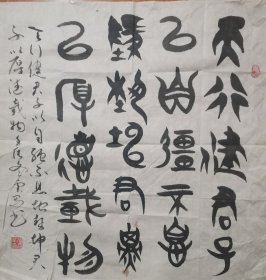 天行健君子
以自彊不息
地势坤君子
以厚德载物
天行健君子以自强不息地势坤君
子以厚德载物